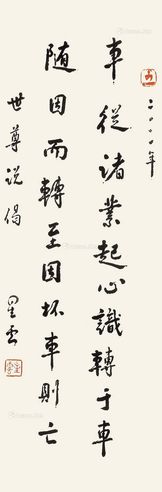 二〇〇〇年
車從諸業起心識轉于車
隨因而轉至因坏車則亡
世尊说偈
星雲